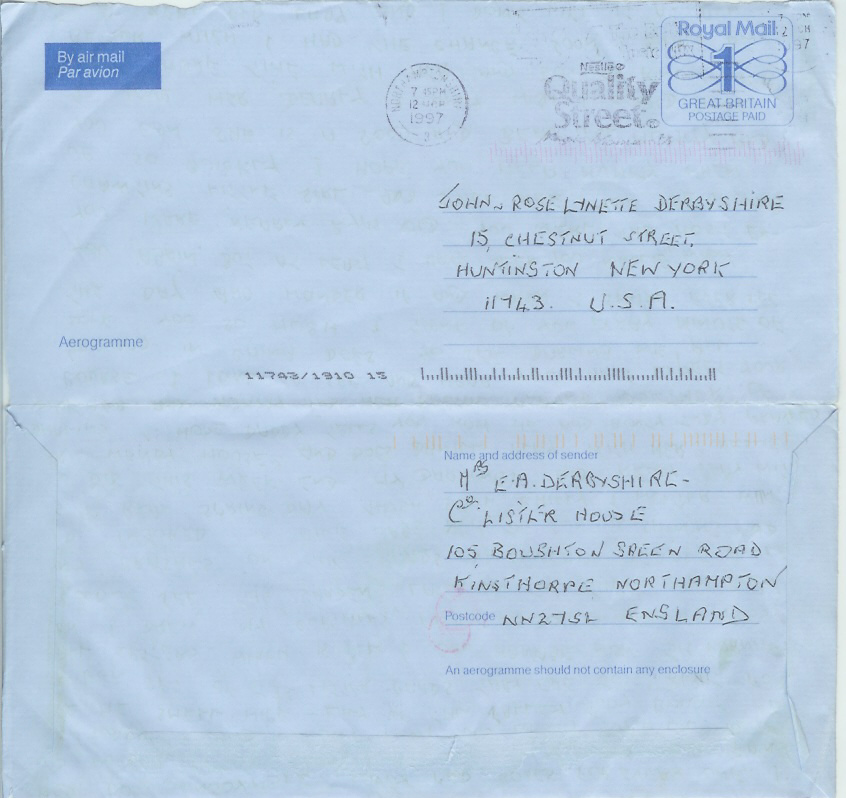 By air mail
Par avion
Royal Mail
1
GREAT BRITAIN
POSTAGE PAID
7 15PM
12 MAR
1997
Nestlé
Quality
Street
JOHN ROSE LYNETTE DERBYSHIRE
15, CHESTNUT STREET.
HUNTINGSTON NEW YORK
11743. U.S.A.
Aerogramme
11743/1910 15
Name and address of sender
MRS E.A. DERBYSHIRE-
C/o LISTER HOUSE
105 BOUGHTON GREEN ROAD
KINGTHORPE NORTHAMPTON
Postcode NN27SL ENGLAND
An aerogramme should not contain any enclosure